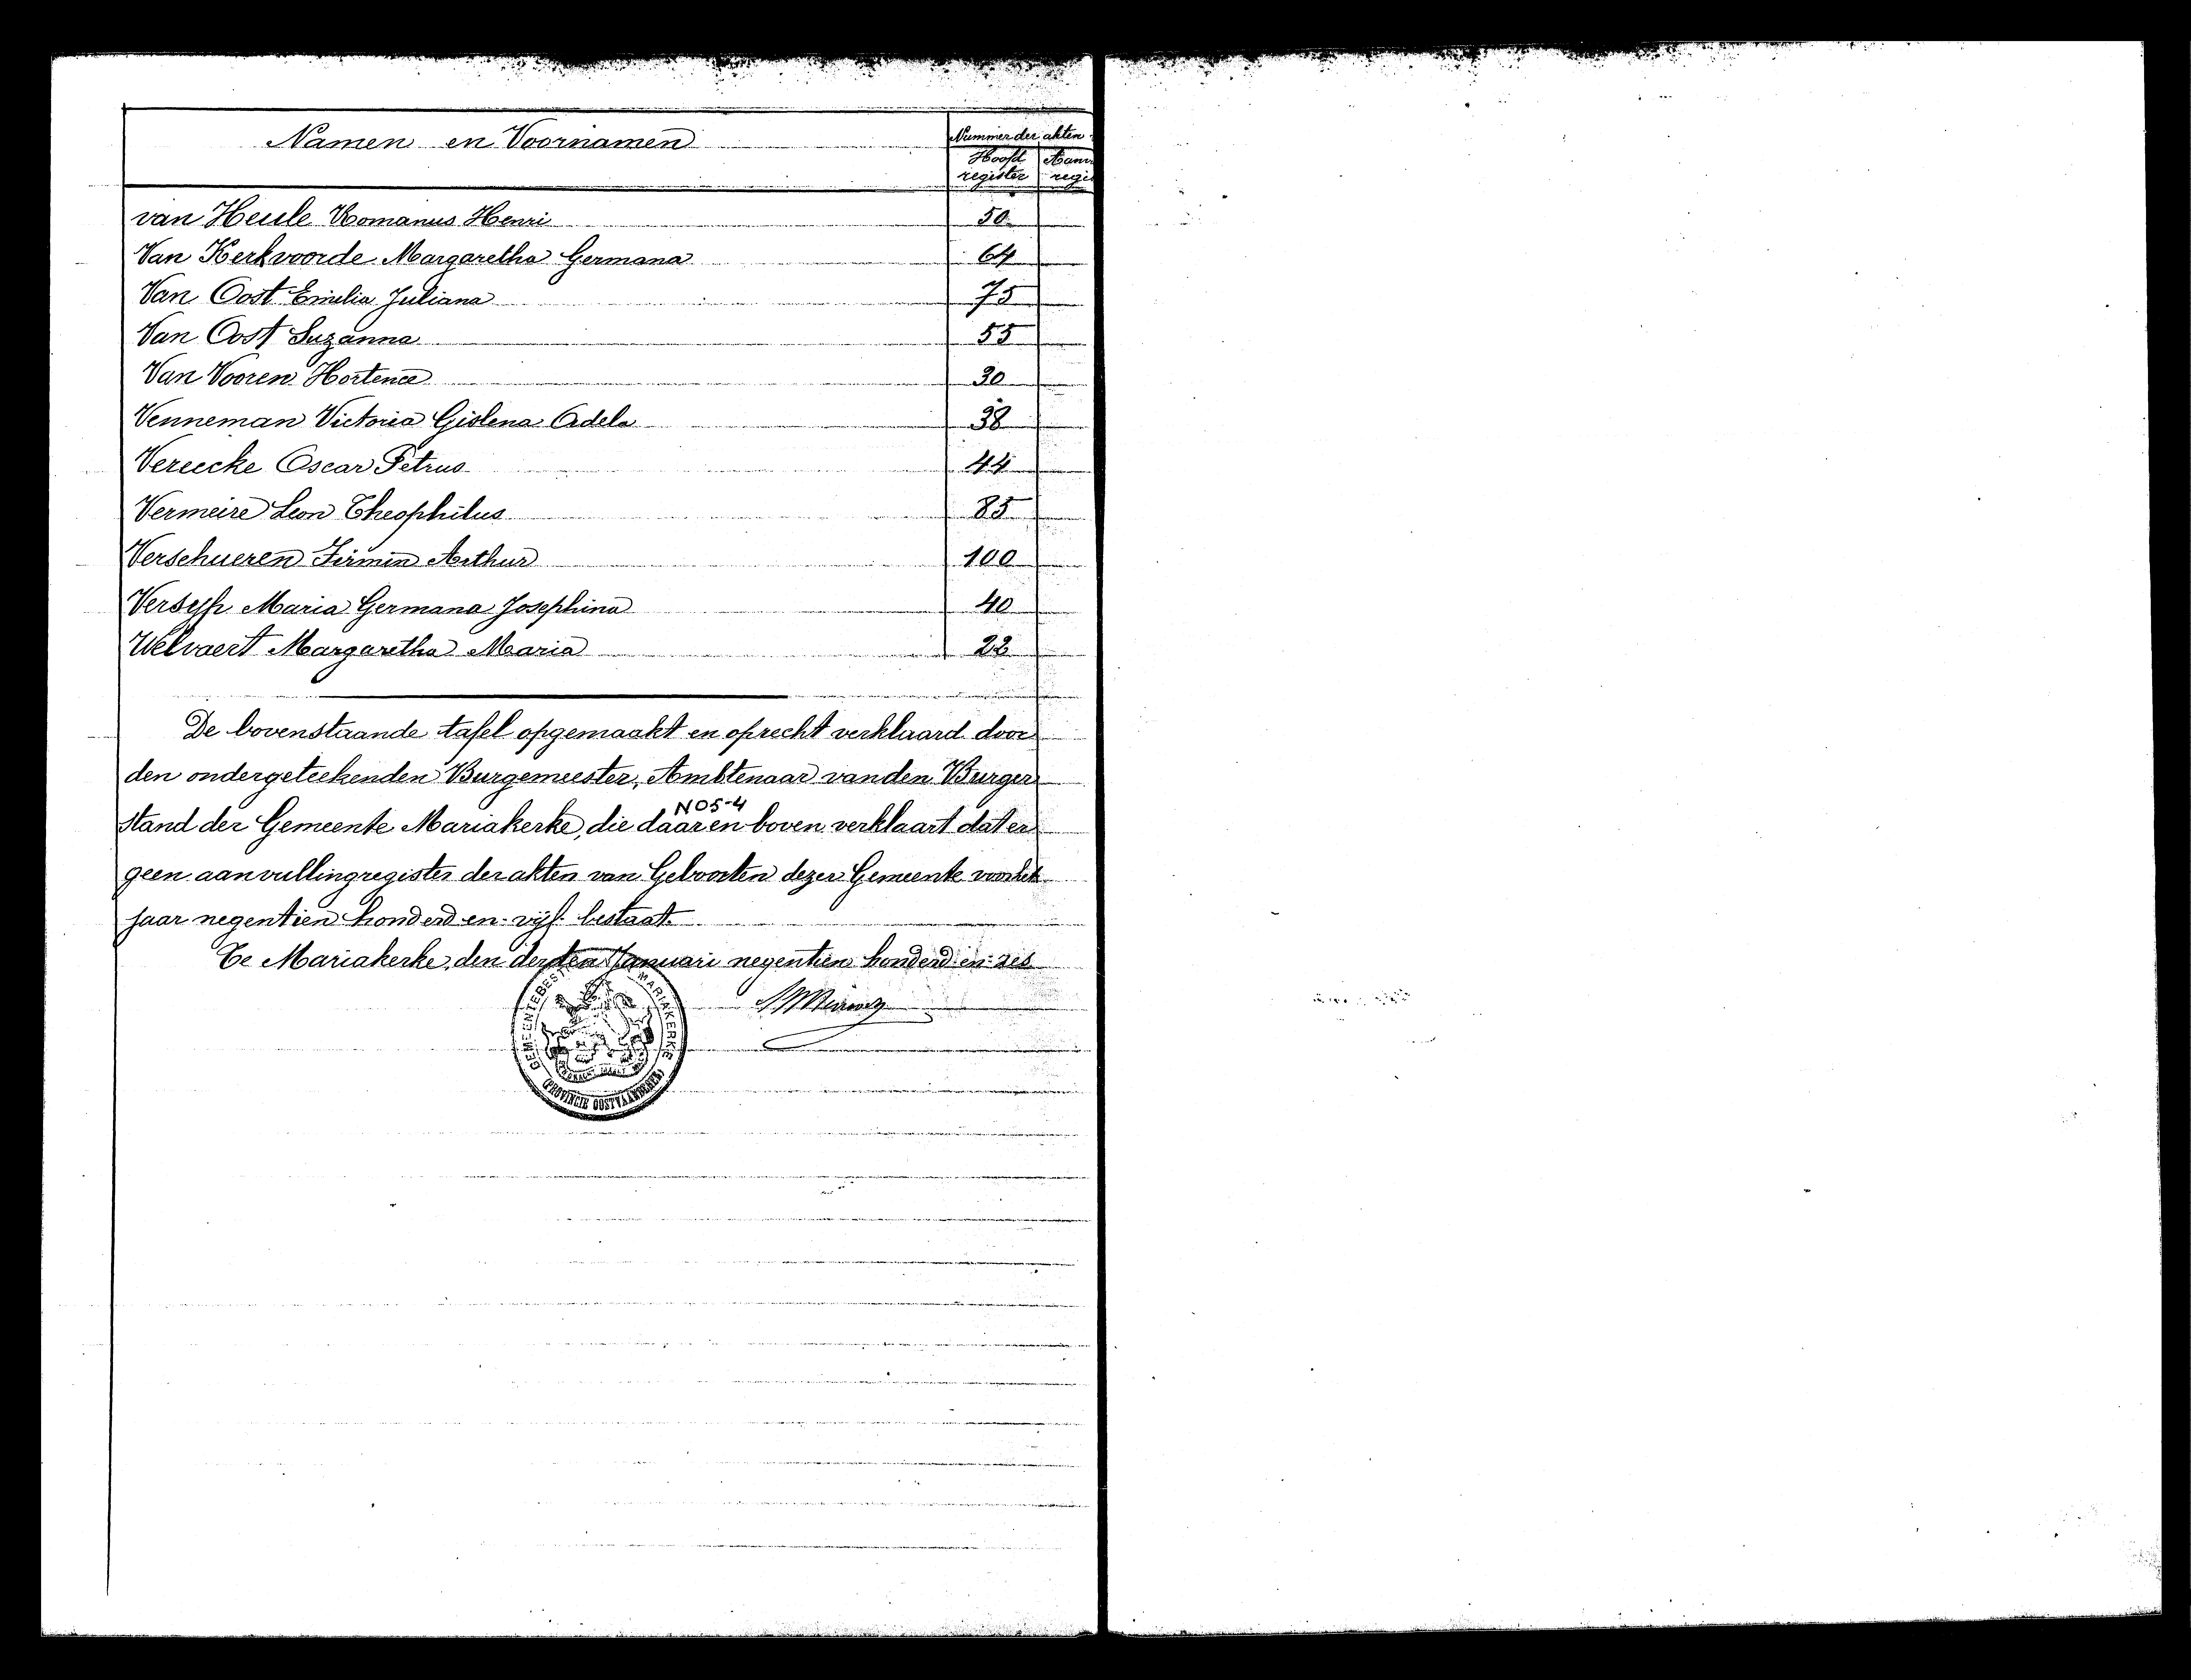 Namen en Voornamen Nummer der akten
Hoofd register
van Heule Romanus Henri 50
Van Kerkvoorde Margaretha Germana 64
Van Oost Emilia Juliana 75
Van Oost Suzanna 55
Van Vooren Hortence 30
Venneman Victoria Gislena Adela 38
Vereecke Oscar Petrus 44
Vermeire Leon Theophilus 85
Verschueren Firmin Arthur 100
Versyp Maria Germana Josephina 40
Welvaert Margaretha Maria 22
De bovenstaande tafel opgemaakt en oprecht verklaard door
den ondergeteekenden Burgemeester, Ambtenaar van den Burger
NO5-4
stand der Gemeente Mariakerke, die daar en boven verklaart dat er
geen aanvullingregister der akten van Geboorten dezer Gemeente voor het
jaar negentien honderd en vijf bestaat.
Te Mariakerke, den derden Januari negentien honderd en zes
MARIAKERKE
(PROVINCIE OOSTVLAANDEREN)